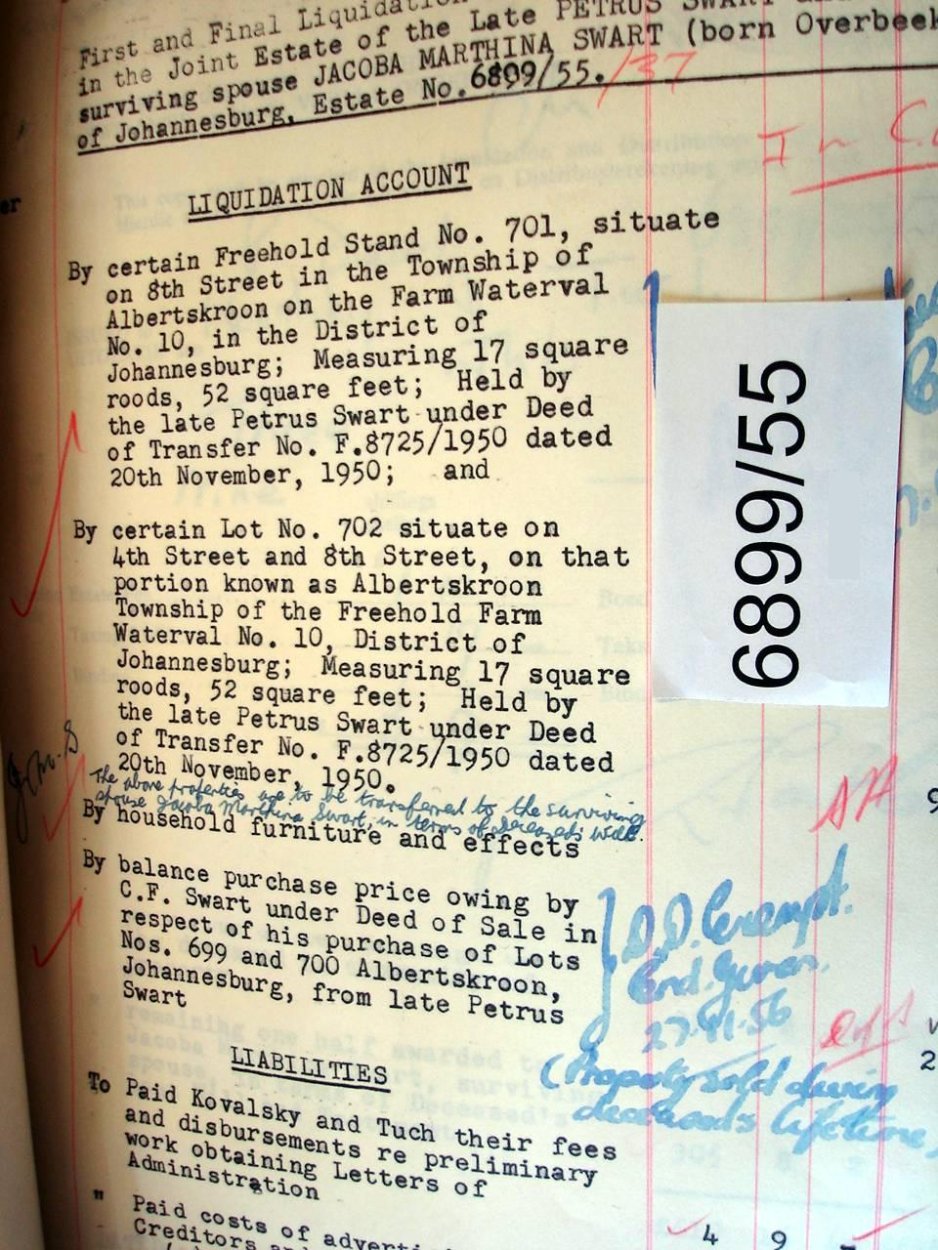 First and Final Liquidation
in the Joint Estate of the Late PETRUS SWART and
surviving spouse JACOBA MARTHINA SWART (born Overbeek
of Johannesburg, Estate No.6809/55./37
In C.
LIQUIDATION ACCOUNT
By certain Freehold Stand No. 701, situate
on 8th Street in the Township of
Albertskroon on the Farm Waterval
No. 10, in the District of
Johannesburg; Measuring 17 square
roods, 52 square feet; Held by
the late Petrus Swart under Deed
of Transfer No. F.8725/1950 dated
20th November, 1950; and
6899/55
By certain Lot No. 702 situate on
4th Street and 8th Street, on that
portion known as Albertskroon
Township of the Freehold Farm
Waterval No. 10, District of
Johannesburg; Measuring 17 square
roods, 52 square feet; Held by
the late Petrus Swart under Deed
of Transfer No. F.8725/1950 dated
20th November, 1950.
J.M.S
The above properties are to be transferred to the surviving
spouse Jacoba Marthina Swart, in terms of deceased's will.
By household furniture and effects
By balance purchase price owing by
C.F. Swart under Deed of Sale in
respect of his purchase of Lots
Nos. 699 and 700 Albertskroon,
Johannesburg, from late Petrus
Swart
D.D. Exempt.
End. Given.
27.11.56
(Property sold during
deceased's lifetime)
LIABILITIES
To Paid Kovalsky and Tuch their fees
and disbursements re preliminary
work obtaining Letters of
Administration
" Paid costs of adverti
Creditors an
4 9